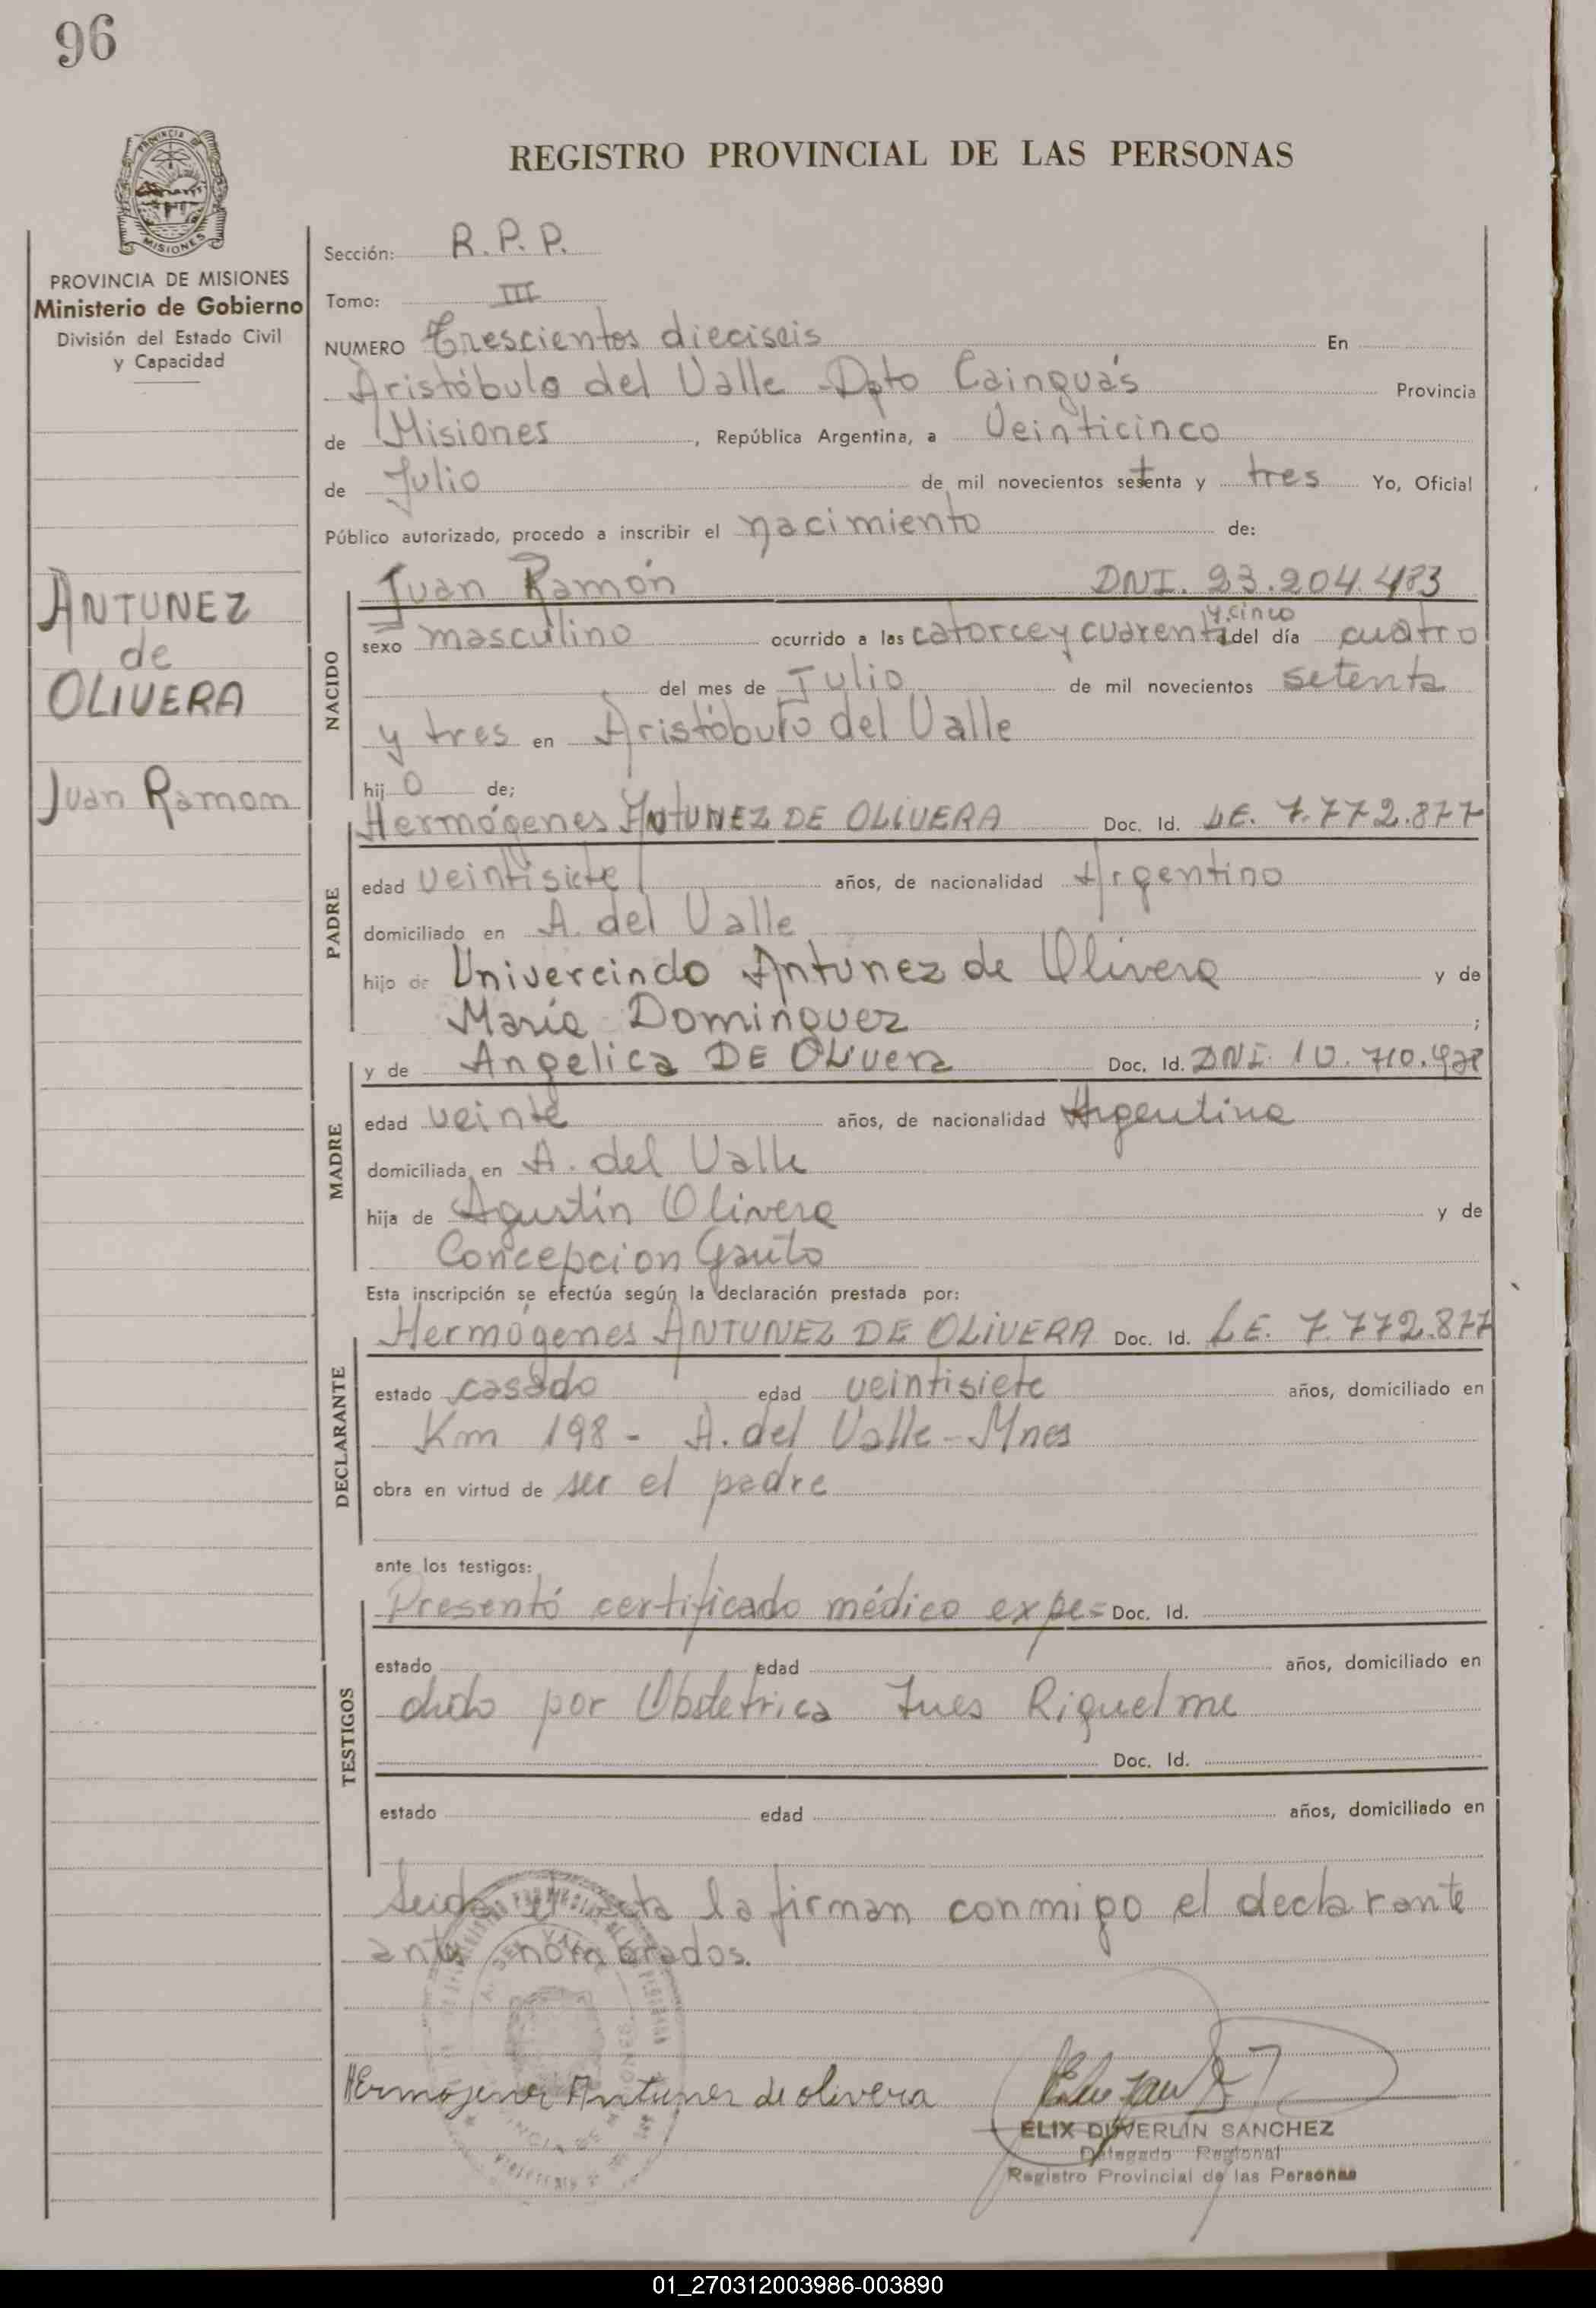 96
REGISTRO PROVINCIAL DE LAS PERSONAS
PROVINCIA
MISIONES
PROVINCIA DE MISIONES
Ministerio de Gobierno
División del Estado Civil
y Capacidad
ANTUNEZ
de
OLIVERA
Juan Ramon
Sección: R.P.P.
Tomo: III
NUMERO Trescientos dieciseis En
Aristóbulo del Valle - Dpto Cainguás Provincia
de Misiones, República Argentina, a Veinticinco
de Julio de mil novecientos setenta y tres Yo, Oficial
Público autorizado, procedo a inscribir el nacimiento de:
NACIDO
Juan Ramón DNI. 23.204.483
y cinco
sexo masculino ocurrido a las catorce y cuarenta del día cuatro
del mes de Julio de mil novecientos setenta
y tres en Aristóbulo del Valle
hijo de;
PADRE
Hermógenes ANTUNEZ DE OLIVERA Doc. Id. LE. 7.772.877
edad veintisiete años, de nacionalidad Argentino
domiciliado en A. del Valle
hijo de Univercindo Antunez de Olivera y de
María Dominguez ;
MADRE
y de Angelica DE OLIVERA Doc. Id. DNI. 10.710.
edad veinte años, de nacionalidad Argentina
domiciliada en A. del Valle
hija de Agustín Olivera y de
Concepcion Gauto
Esta inscripción se efectúa según la declaración prestada por:
DECLARANTE
Hermógenes ANTUNEZ DE OLIVERA Doc. Id. LE. 7.772.877
estado casado edad veintisiete años, domiciliado en
Km 198 - A. del Valle - Mnes
obra en virtud de ser el padre
ante los testigos:
TESTIGOS
Presentó certificado médico expe= Doc. Id.
estado edad años, domiciliado en
dido por Obstetrica Ines Riquelme
Doc. Id.
estado edad años, domiciliado en
Leida el acta la firman conmigo el declarante
antes nombrados.
Hermogenes Antunez de olivera
ELIX DUVERLIN SANCHEZ
Delegado Regional
Registro Provincial de las Personas
01_270312003986-003890